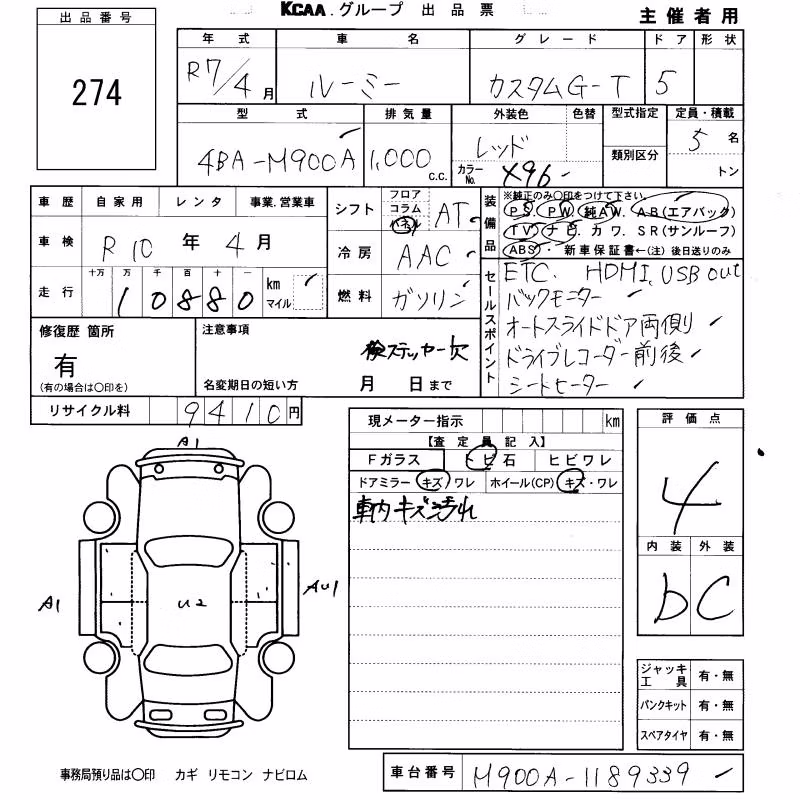 KCAA.グループ 出品票
主催者用
出品番号
274
年式 車名 グレード ドア 形状
R7/4月 ルーミー カスタムG-T 5
型式 排気量 外装色 色替 型式指定 定員・積載
4BA-M900A 1,000c.c. レッド 5名
カラーNo. X96 類別区分 トン
車歴 自家用 レンタ 事業.営業車
車検 R10年4月
走行 十万 万 千 百 十 一
10880 km マイル
シフト フロア コラム パネル AT
冷房 AAC
燃料 ガソリン
装備品
※純正のみ〇印をつけて下さい
PS. PW. 純AW. AB(エアバック)
TV. ナビ. カワ. SR(サンルーフ)
ABS・ 新車保証書←(注) 後日送りのみ
セールスポイント
ETC. HDMI, USB out
バックモニター
オートスライドドア両側
ドライブレコーダー前後
シートヒーター
修復歴 箇所
有
(有の場合は〇印を)
注意事項
検ステッカー欠
名変期日の短い方 月 日まで
リサイクル料 9410円
現メーター指示 km
【査定員記入】
Fガラス トビ石 ヒビワレ
ドアミラー キズ・ワレ ホイール(CP) キズ・ワレ
車内キズ汚れ
評価点
4
内装 外装
b C
A1
A1 U2 AU1
ジャッキ工具 有・無
パンクキット 有・無
スペアタイヤ 有・無
事務局預り品は〇印 カギ リモコン ナビロム
車台番号 M900A-1189339